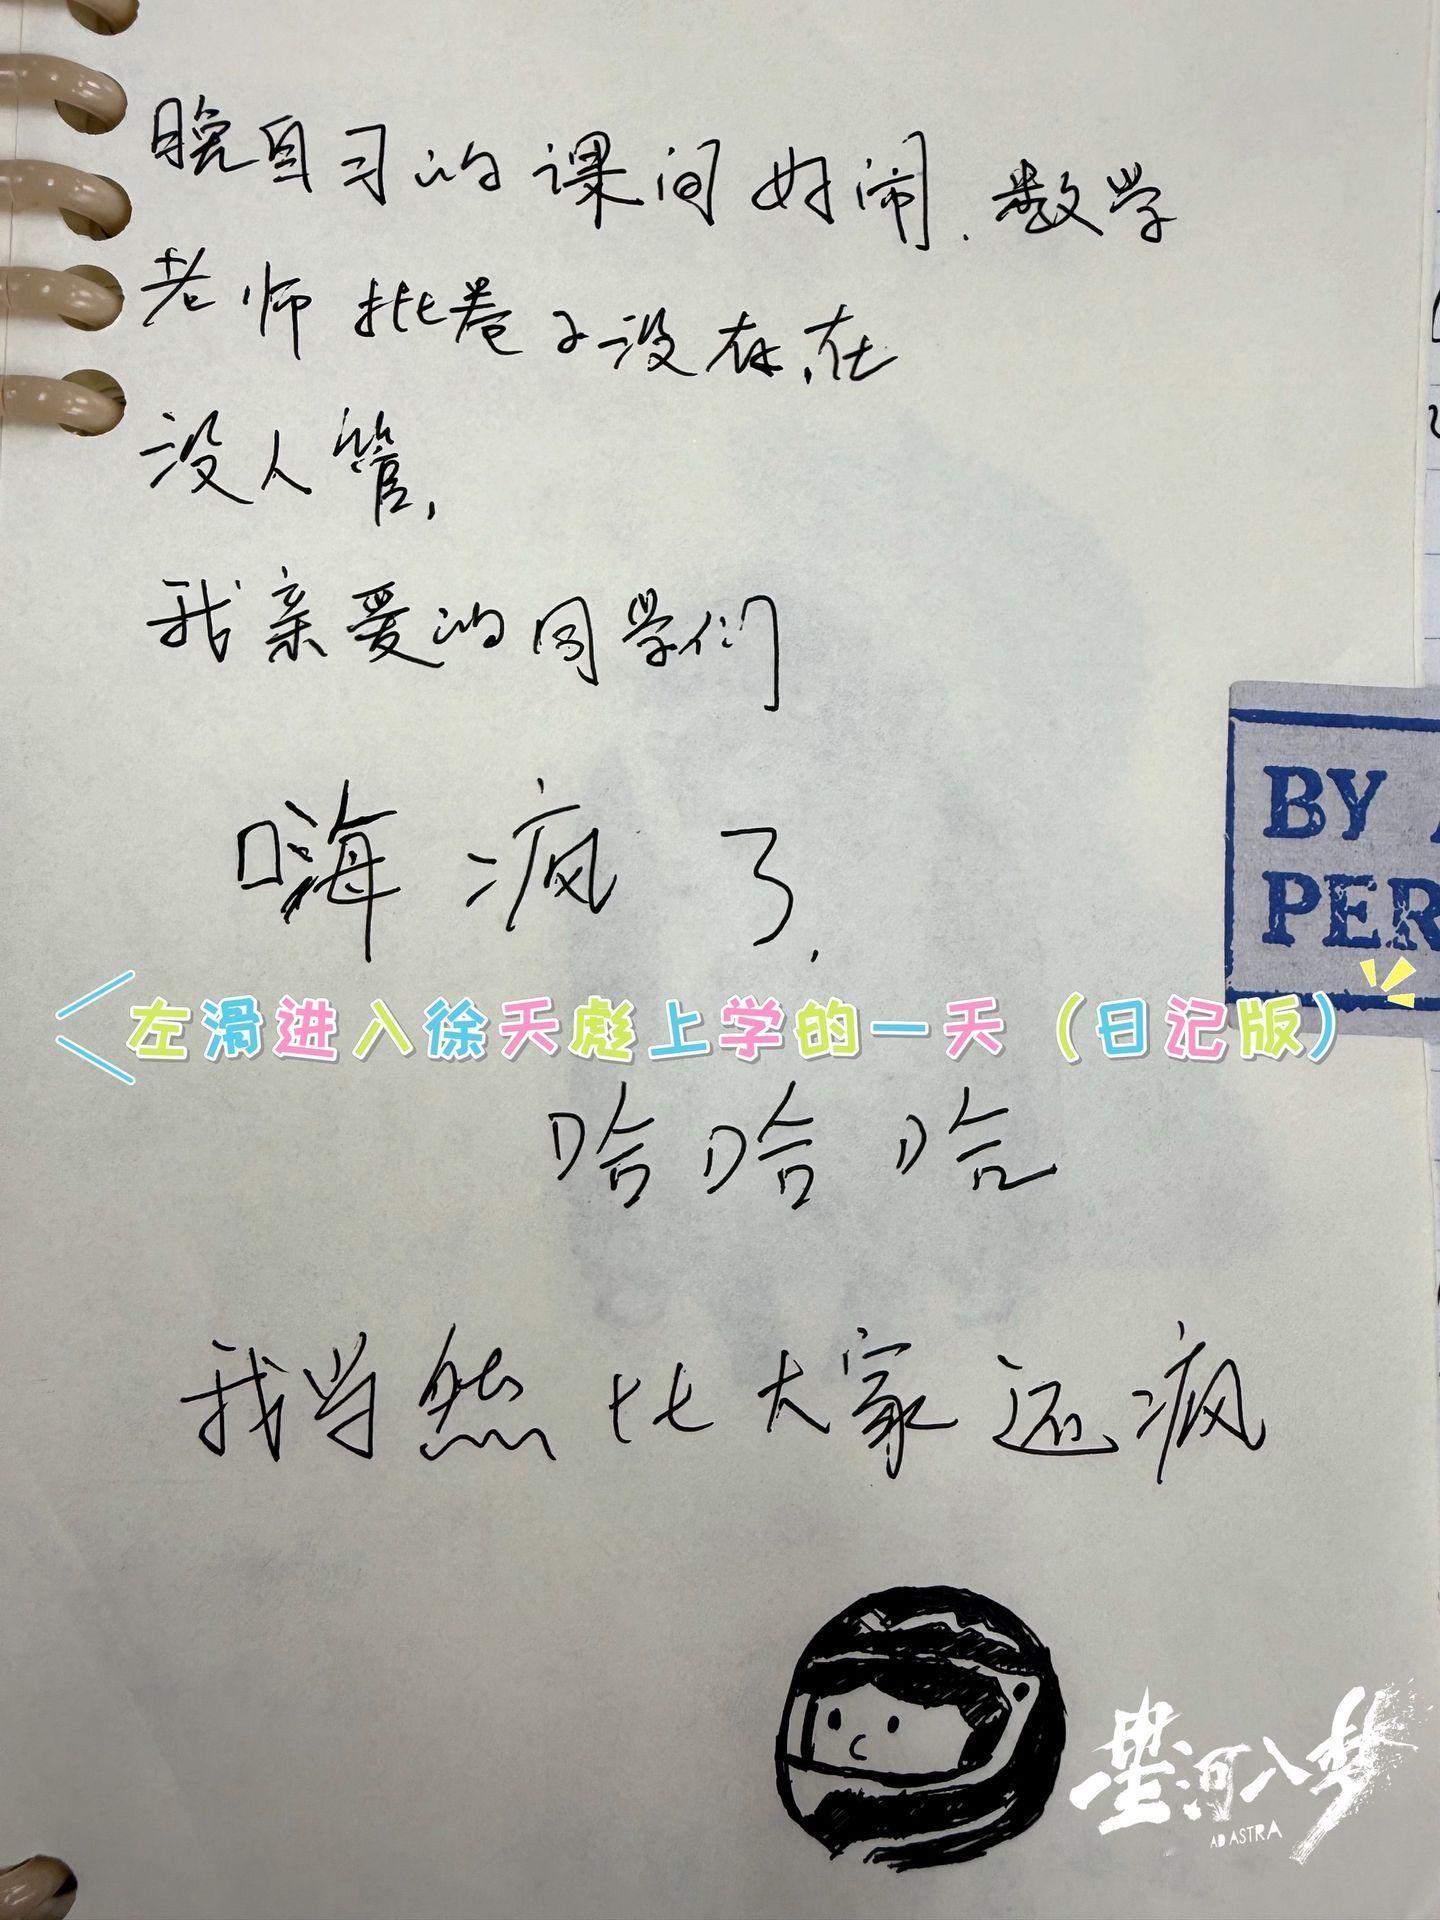 晚自习的课间好闹.数学
老师批卷子没存在
没人管,
我亲爱的同学们
嗨疯了.
BY
PER
左滑进入徐天彪上学的一天（日记版）
哈哈哈
我当然比大家还疯
星河入梦
AD ASTRA